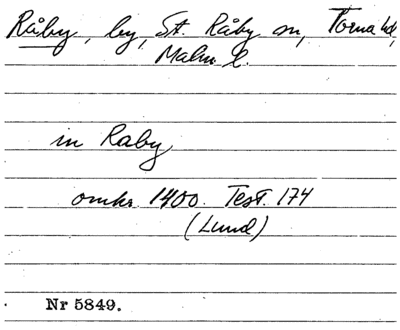 Råby, by, St. Råby sn, Torna hd,
Malm. l.
in Raby
omkr. 1400. Test. 174
(Lund)
Nr 5849.